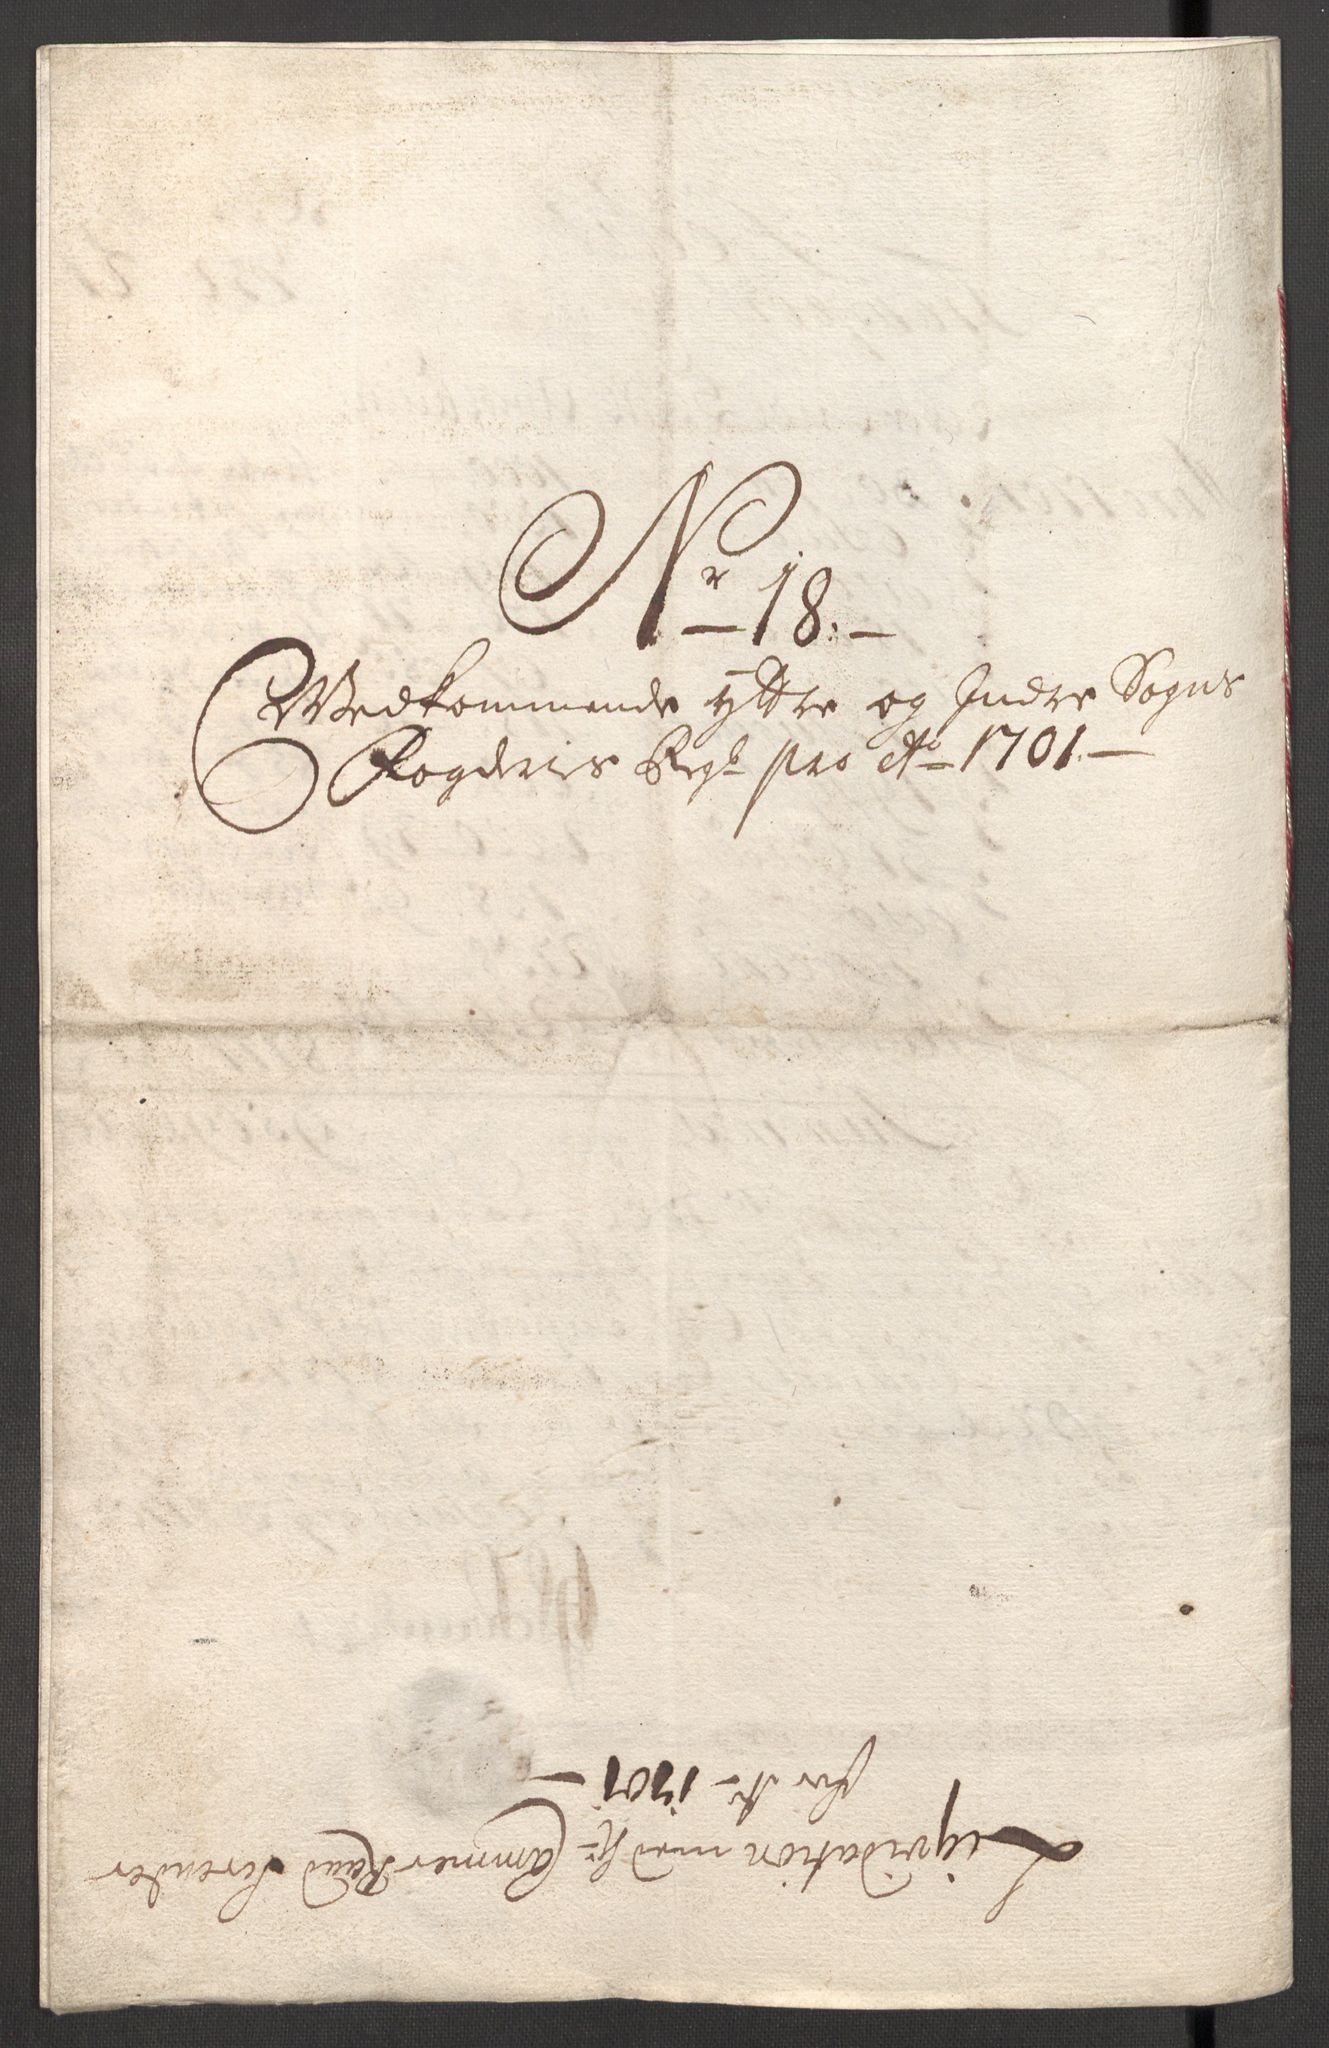 Nr 18.
Vedkommende yttre og Indre Sogns
Fogderies Regsk pro Ao 1701.
Liqvidation med Hr Cammer Raad Severder
for Ao 1701